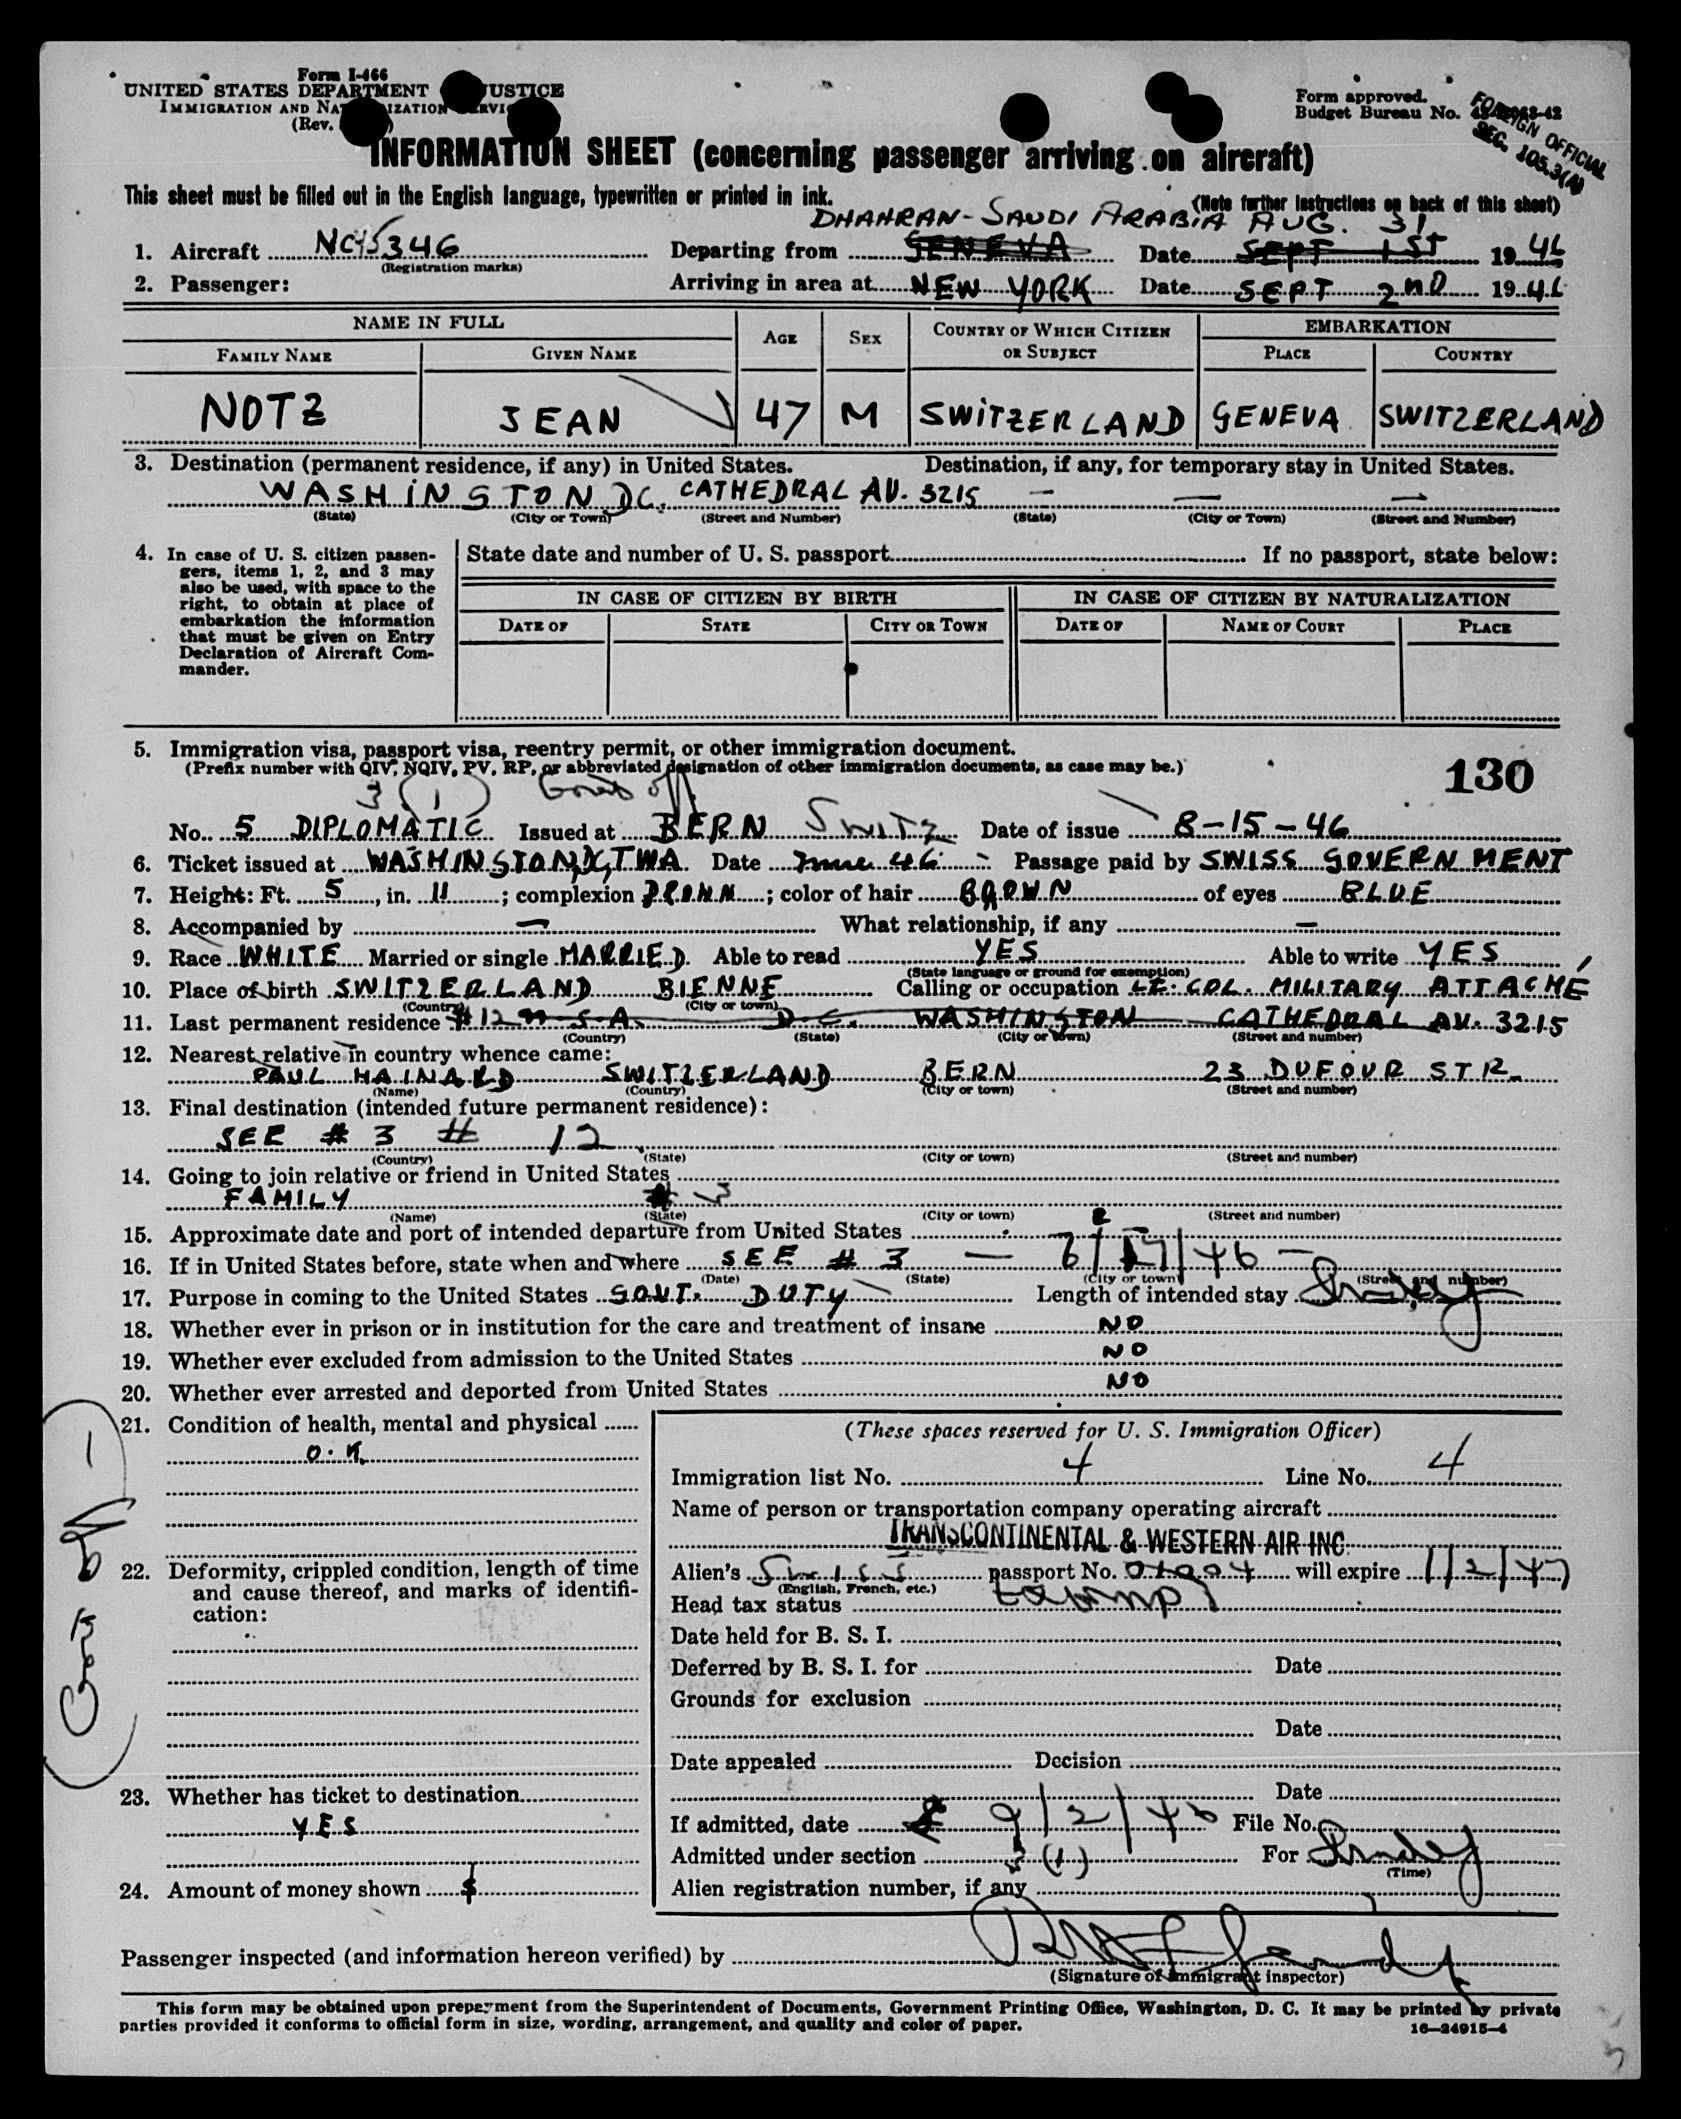 Form I-466
UNITED STATES DEPARTMENT JUSTICE
IMMIGRATION AND
(Rev.
Form approved.
Budget Bureau No.
FOREIGN OFFICIAL
SEC. 105.3(A)
INFORMATION SHEET (concerning passenger arriving on aircraft)
This sheet must be filled out in the English language, typewritten or printed in ink.
(Note further instructions on back of this sheet)
DHAHRAN - SAUDI ARABIA AUG. 31
1. Aircraft NC45346 Departing from GENEVA Date SEPT 1ST 1946
(Registration marks)
2. Passenger: Arriving in area at NEW YORK Date SEPT 2ND 1946
NAME IN FULL AGE SEX COUNTRY OF WHICH CITIZEN OR SUBJECT EMBARKATION
FAMILY NAME GIVEN NAME PLACE COUNTRY
NOTZ JEAN 47 M SWITZERLAND GENEVA SWITZERLAND
3. Destination (permanent residence, if any) in United States. Destination, if any, for temporary stay in United States.
WASHINGTON DC. CATHEDRAL AV. 3215 — — —
(State) (City or Town) (Street and Number) (State) (City or Town) (Street and Number)
4. In case of U. S. citizen passen-
gers, items 1, 2, and 3 may
also be used, with space to the
right, to obtain at place of
embarkation the information
that must be given on Entry
Declaration of Aircraft Com-
mander.
State date and number of U. S. passport If no passport, state below:
IN CASE OF CITIZEN BY BIRTH IN CASE OF CITIZEN BY NATURALIZATION
DATE OF STATE CITY OR TOWN DATE OF NAME OF COURT PLACE
5. Immigration visa, passport visa, reentry permit, or other immigration document.
(Prefix number with QIV, NQIV, PV, RP, or abbreviated designation of other immigration documents, as case may be.)
130
3 (1) Govt off
No. 5 DIPLOMATIC Issued at BERN SWITZ Date of issue 8-15-46
6. Ticket issued at WASHINGTON, TWA Date June 46 Passage paid by SWISS GOVERNMENT
7. Height: Ft. 5, in. 11; complexion BROWN; color of hair BROWN of eyes BLUE
8. Accompanied by — What relationship, if any —
9. Race WHITE Married or single MARRIED Able to read YES Able to write YES
(State language or ground for exemption)
10. Place of birth SWITZERLAND BIENNE Calling or occupation LT. COL. MILITARY ATTACHÉ
(Country) (City or town)
11. Last permanent residence #12 U.S.A. D.C. WASHINGTON CATHEDRAL AV. 3215
(Country) (State) (City or town) (Street and number)
12. Nearest relative in country whence came:
PAUL HAINARD SWITZERLAND BERN 23 DUFOUR STR.
(Name) (Country) (City or town) (Street and number)
13. Final destination (intended future permanent residence):
SEE # 3 # 12
(Country) (State) (City or town) (Street and number)
14. Going to join relative or friend in United States
FAMILY # 3
(Name) (State) (City or town) (Street and number)
15. Approximate date and port of intended departure from United States
16. If in United States before, state when and where SEE # 3 —
(Date) (State) (City or town) (Street and number)
17. Purpose in coming to the United States GOVT. DUTY Length of intended stay
18. Whether ever in prison or in institution for the care and treatment of insane NO
19. Whether ever excluded from admission to the United States NO
20. Whether ever arrested and deported from United States NO
21. Condition of health, mental and physical
O.K.
22. Deformity, crippled condition, length of time
and cause thereof, and marks of identifi-
cation:
23. Whether has ticket to destination
YES
24. Amount of money shown $
(These spaces reserved for U. S. Immigration Officer)
Immigration list No. 4 Line No. 4
Name of person or transportation company operating aircraft
TRANSCONTINENTAL & WESTERN AIR INC.
Alien's Swiss passport No. will expire 1/2/47
(English, French, etc.)
Head tax status
Date held for B. S. I.
Deferred by B. S. I. for Date
Grounds for exclusion
Date
Date appealed Decision
Date
If admitted, date 9/2/46 File No.
Admitted under section 3 (1) For
(Time)
Alien registration number, if any
Passenger inspected (and information hereon verified) by
(Signature of immigrant inspector)
This form may be obtained upon prepayment from the Superintendent of Documents, Government Printing Office, Washington, D. C. It may be printed by private
parties provided it conforms to official form in size, wording, arrangement, and quality and color of paper.
16—24915-4